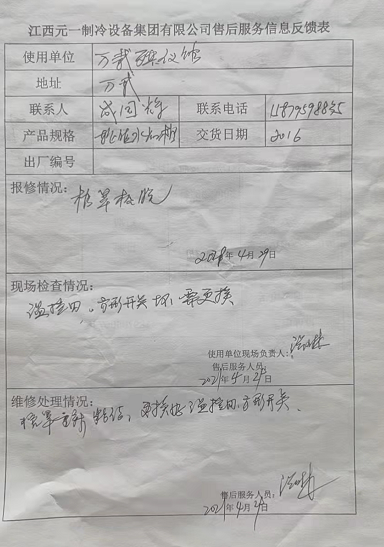 江西元一制冷设备集团有限公司售后服务信息反馈表
使用单位 万载殡仪馆
地址 万载
联系人 联系电话
产品规格 交货日期 2016
出厂编号
报修情况：
棺罩极脱
2021年4月29日
现场检查情况：
温控田。方形开关坏 需更换
使用单位现场负责人：
售后服务人员：
2021年4月29日
维修处理情况：
棺罩重新粘结，更换 温控田.方形开关.
售后服务人员：
2021年4月29日